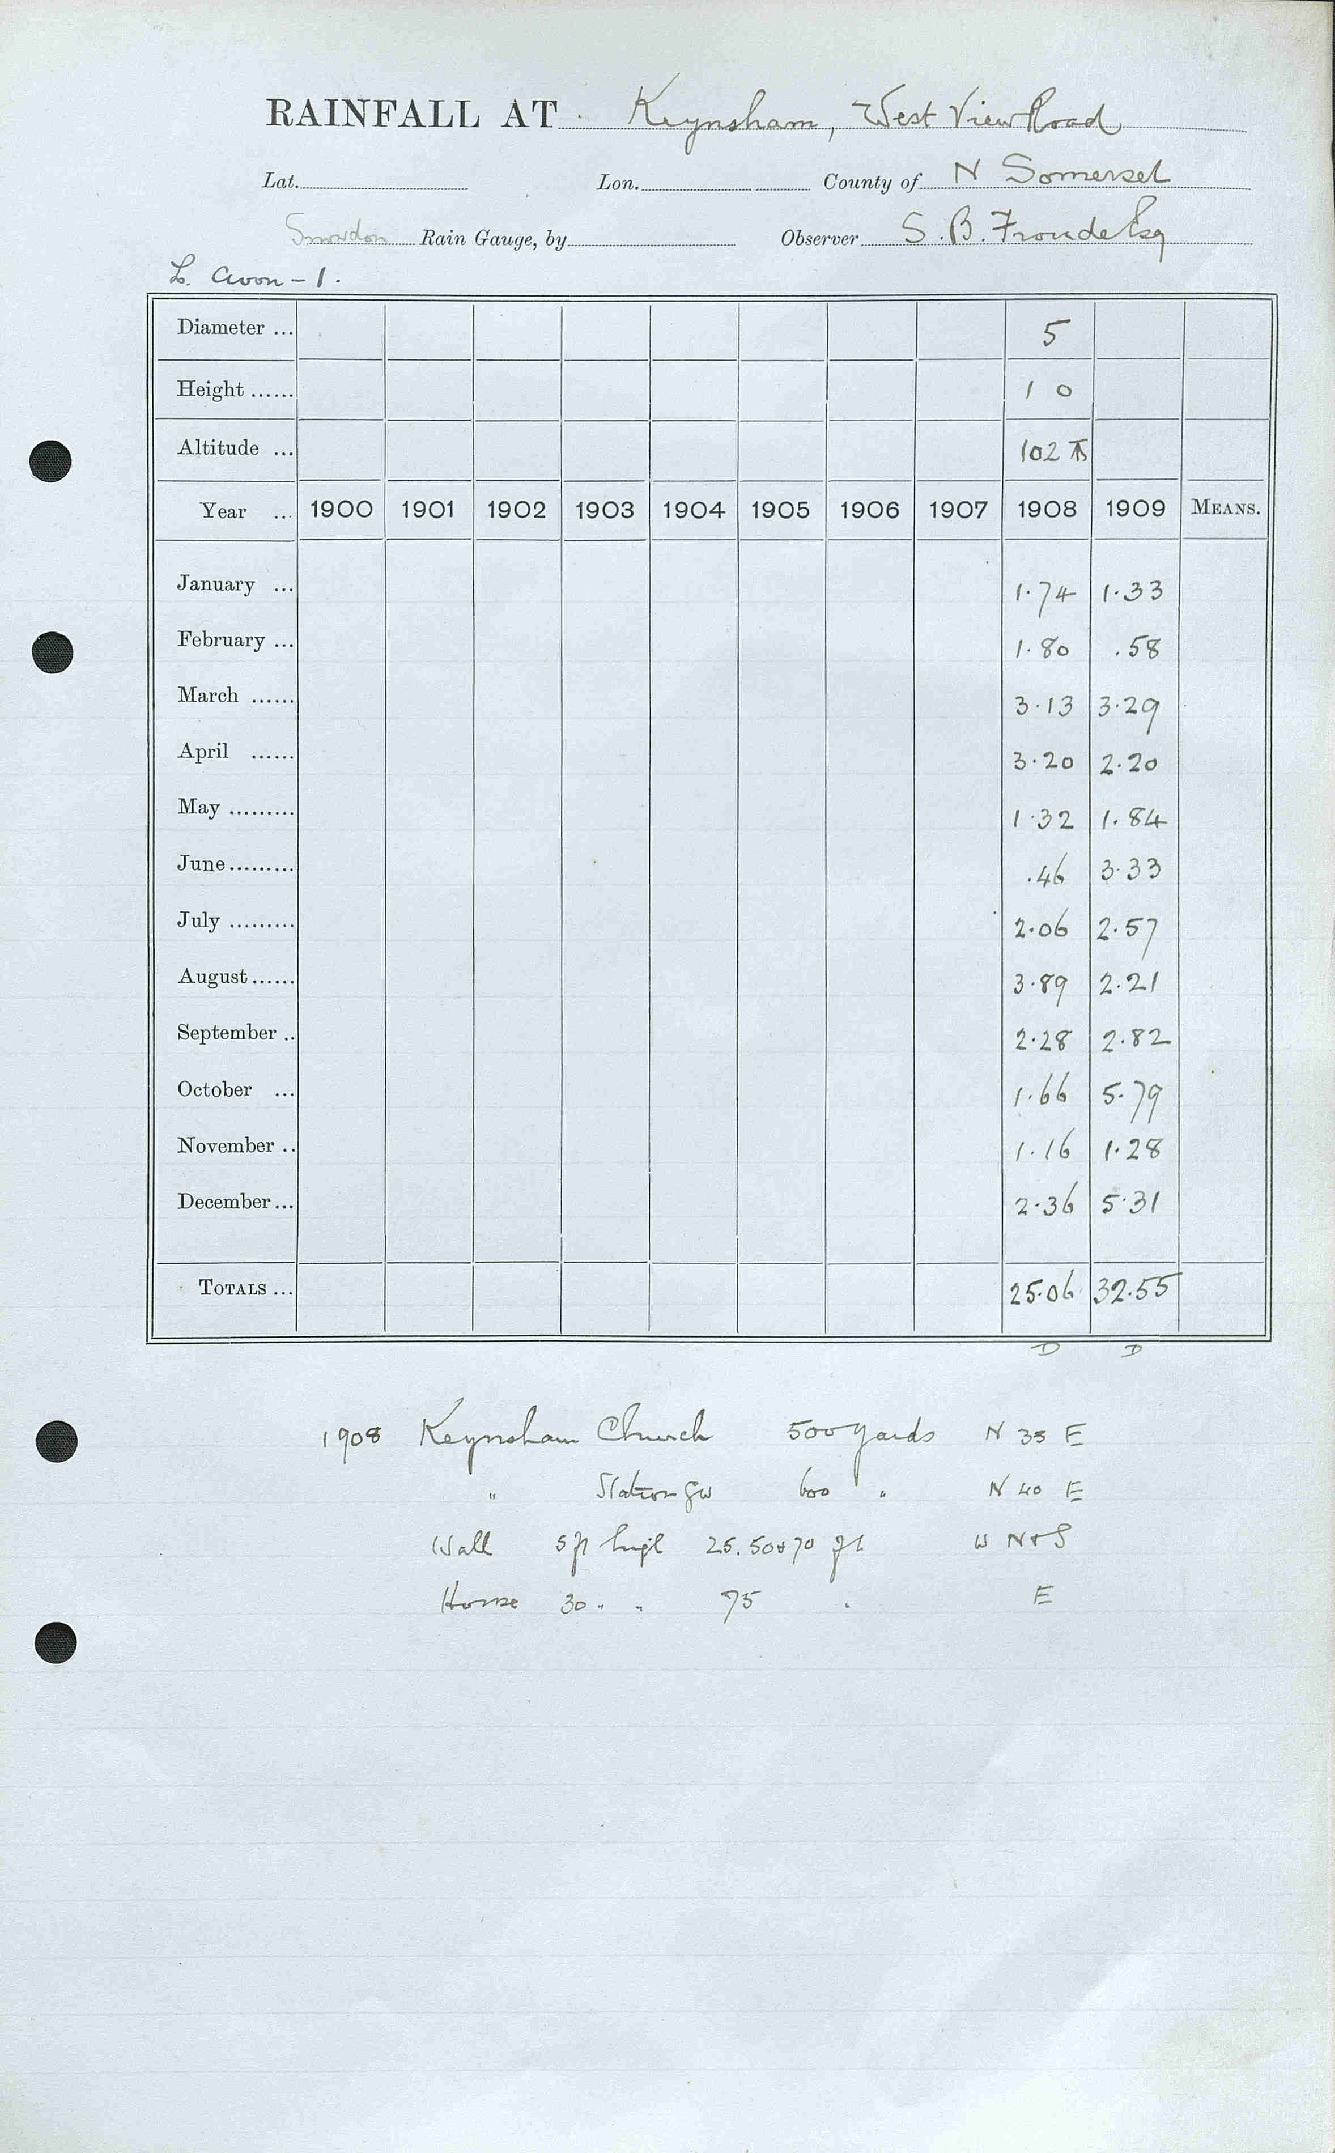 RAINFALL AT Keynsham, West View Road
Lat. Lon. County of N Somerset
Snowdon Rain Gauge, by Observer S. B. Froude Esq
L. Avon - 1.
Diameter ... 5
Height ...... 1 0
Altitude ... 102
Year ... 1900 1901 1902 1903 1904 1905 1906 1907 1908 1909 MEANS.
January ... 1.74 1.33
February ... 1.80 .58
March ...... 3.13 3.29
April ...... 3.20 2.20
May ......... 1.32 1.84
June ......... .46 3.33
July ......... 2.06 2.57
August ...... 3.89 2.21
September .. 2.28 2.82
October ... 1.66 5.79
November .. 1.16 1.28
December ... 2.36 5.31
TOTALS ... 25.06 32.55
D D
1908 Keynsham Church 500 yards N 35 E
" Station 600 " N 40 E
Wall 5 ft high 25. 50 & 70 ft W N & S
House 30 " " 75 " E